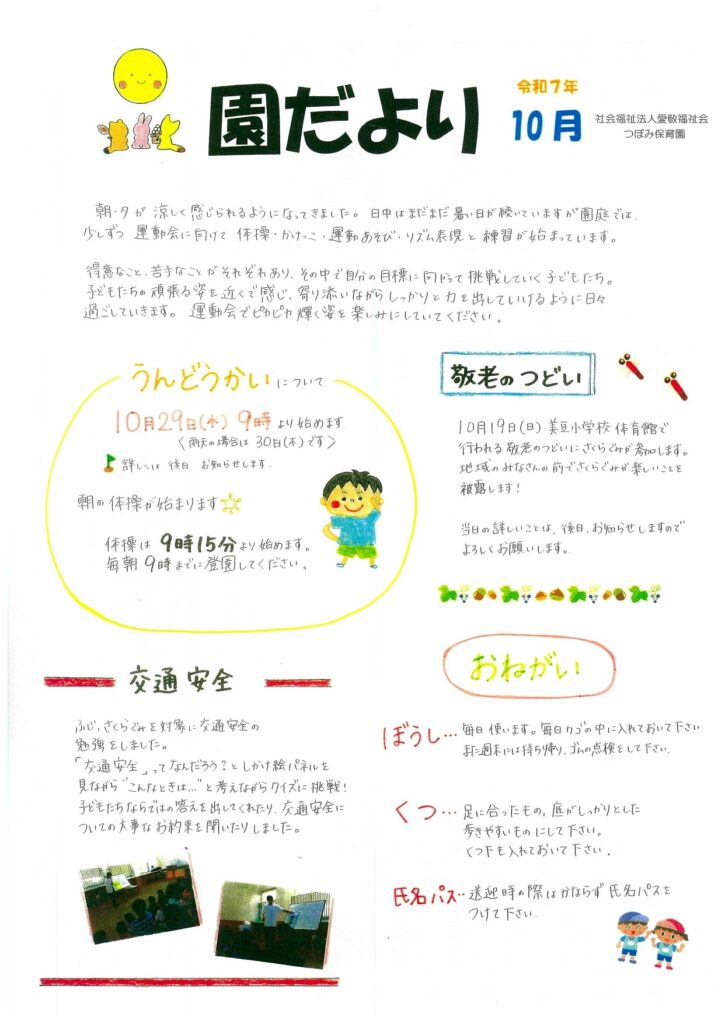 園だより
令和7年
10月
社会福祉法人愛敬福祉会
つぼみ保育園
朝・夕が 涼しく感じられるようになってきました。日中はまだまだ暑い日が続いていますが園庭では、
少しずつ 運動会に向けて 体操・かけっこ・運動あそび・リズム表現と練習が始まっています。
得意なこと、苦手なことがそれぞれあり、その中で自分の目標に向かって挑戦していく子どもたち。
子どもたちの頑張る姿を近くで感じ、寄り添いながらしっかりと力を出していけるように日々
過ごしていきます。 運動会でピカピカ輝く姿を楽しみにしていてください。
うんどうかいについて
10月29日(水) 9時より始めます
〈雨天の場合は 30日(木)です〉
詳しくは 後日 お知らせします.
朝の体操が始まります
体操は 9時15分より始めます。
毎朝 9時までに登園してください。
敬老のつどい
10月19日(日) 美豆小学校 体育館で
行われる 敬老のつどいにさくらぐみが参加します。
地域のみなさんの前でさくらぐみが楽しいことを
披露します!
当日の詳しいことは、後日、お知らせしますので
よろしくお願いします。
交通安全
ふじ、さくらぐみを対象に交通安全の
勉強をしました。
「交通安全」ってなんだろう?としかけ絵パネルを
見ながら"こんなときは…"と考えながらクイズに挑戦!
子どもたちならではの答えを出してくれたり、交通安全に
ついての大事なお約束を聞いたりしました。
おねがい
ぼうし… 毎日使います。毎日カゴの中に入れておいて下さい
また週末には持ち帰り、ゴムの点検をして下さい.
くつ… 足に合ったもの、底がしっかりとした
歩きやすいものにして下さい。
くつ下も入れておいて下さい.
氏名パス… 送迎時の際はかならず氏名パスを
つけて下さい.